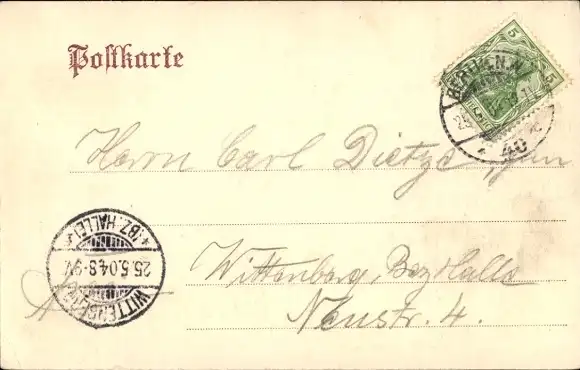 Postkarte
5 5
BERLIN N.W.
40
Herrn Carl Dietze jun
(BZ. HALLE)
25.5.04.8-9V.
WITTENBERG
Wittenberg, Bez Halle
Neustr. 4.